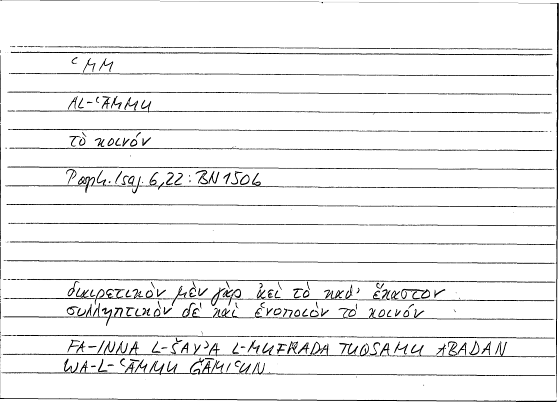 ʿMM
AL-ʿĀMMU
τὸ κοινόν
Porph. Isag. 6,22 : BN 1506
διαιρετικὸν μὲν γὰρ ἀεὶ τὸ καθ' ἕκαστον
συλληπτικὸν δὲ καὶ ἑνοποιὸν τὸ κοινόν
FA-INNA L-ŠAYʾA L-MUFRADA TUQSAMU ABADAN
WA-L-ʿĀMMU ǦĀMIʿUN